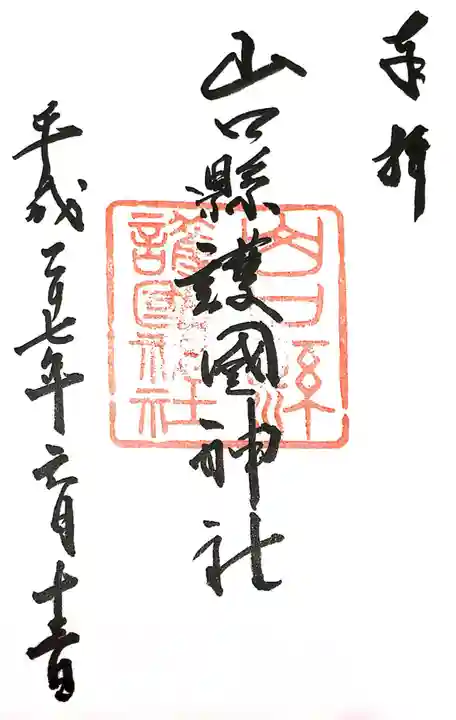 奉拝
山口縣護國神社
平成二十七年六月十三日
山口縣護國神社